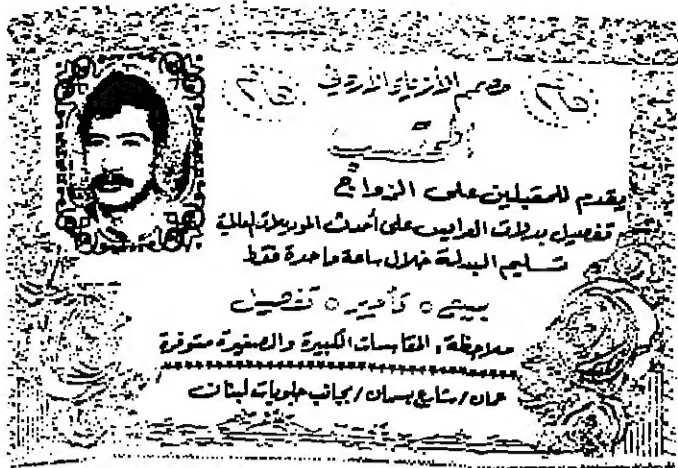 مصمم الأزياء الأردني
يقدم للمقبلين على الزواج
تفصيل بدلات العرايس على أحدث الموديلات العالمية
تسليم البدلة خلال ساعة واحدة فقط
بيع ○ تأجير ○ تفصيل
ملاحظة: المقاسات الكبيرة والصغيرة متوفرة
عمان / شارع بسمان / بجانب حلويات لبنان